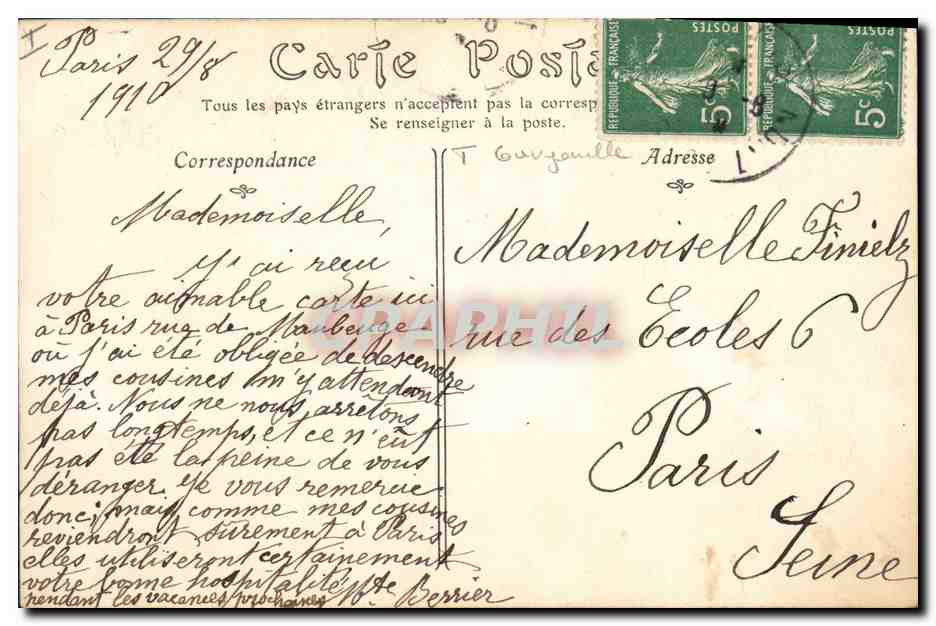 I
Paris 29/8
1910
Carte Posta
Tous les pays étrangers n'acceptent pas la corresp
Se renseigner à la poste.
RÉPUBLIQUE FRANÇAISE
POSTES
5c
RÉPUBLIQUE FRANÇAISE
POSTES
5c
Correspondance
Mademoiselle,
J'ai reçu
votre aimable carte ici
à Paris rue de Maubeuge
où j'ai été obligée de descendre
mes cousines m'y attendant
déjà. Nous ne nous arrêtons
pas longtemps, et ce n'eût
pas été la peine de vous
déranger. Je vous remercie
donc; mais comme mes cousines
reviendront sûrement à Paris
elles utiliseront certainement
votre bonne hospitalité
pendant les vacances prochaines
Berrier
T
Adresse
Mademoiselle Finielz
rue des Ecoles 6
Paris
Seine
CPAPHIL